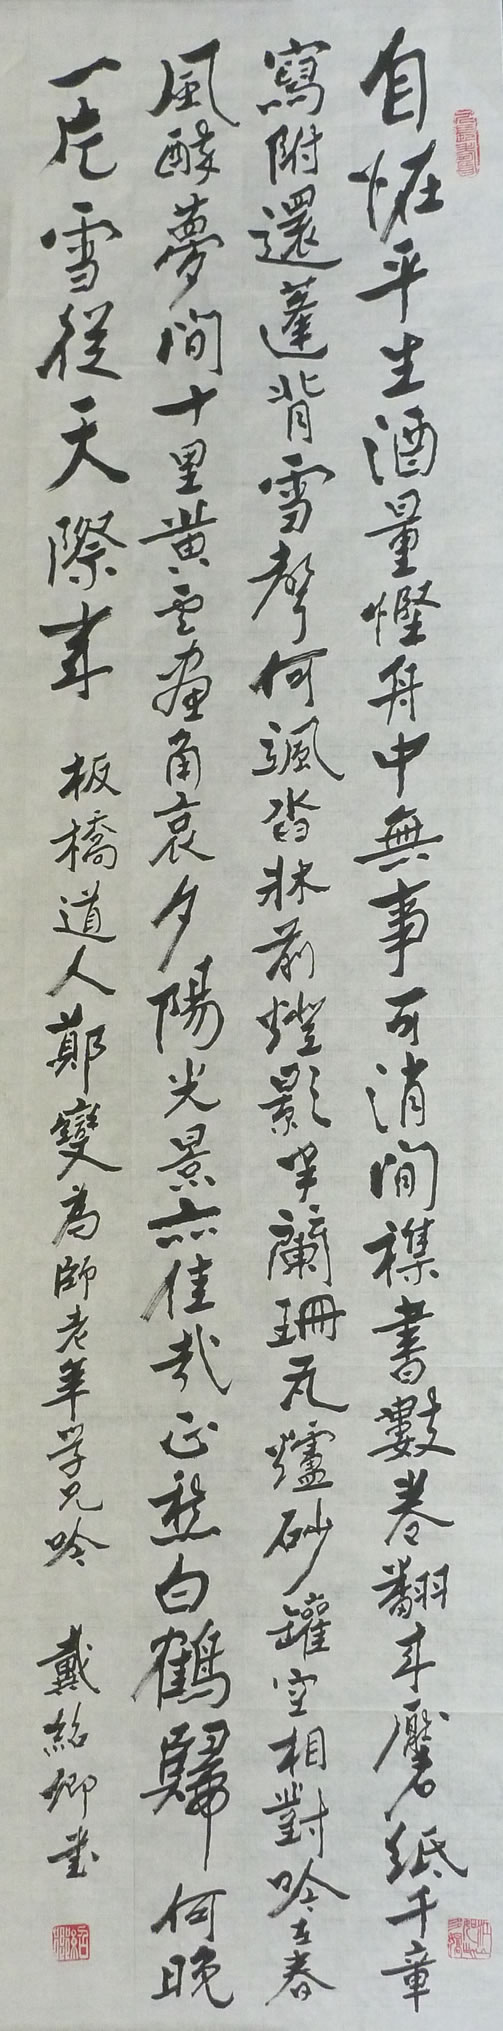 自怪平生酒量慳舟中無事可消閒襍書數卷翻來饜紙千章
寫附還蓬背雪聲何颯沓牀前燈影半闌珊瓦爐砂罐空相對吟在春
風醉夢間十里黃雲畫角哀夕陽光景亦佳哉正愁白鶴歸何晚
一片雪從天際來 板橋道人鄭燮為師老年學兄吟 戴紹卿書